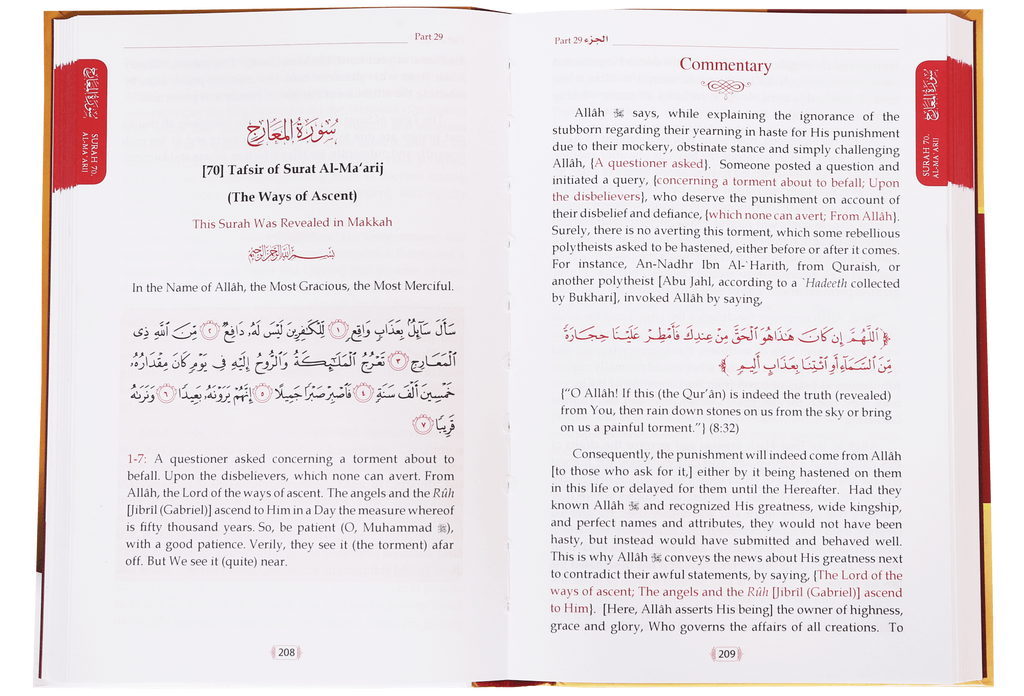 Part 29
سورة المعارج
SURAH 70.
AL-MA'ARIJ
سُورَةُ المَعَارِجِ
[70] Tafsir of Surat Al-Ma‘arij
(The Ways of Ascent)
This Surah Was Revealed in Makkah
بِسْمِ اللَّهِ الرَّحْمَٰنِ الرَّحِيمِ
In the Name of Allâh, the Most Gracious, the Most Merciful.
سَأَلَ سَآئِلٌۢ بِعَذَابٍ وَاقِعٍ ١ لِّلْكَٰفِرِينَ لَيْسَ لَهُۥ دَافِعٌ ٢ مِّنَ ٱللَّهِ ذِى
ٱلْمَعَارِجِ ٣ تَعْرُجُ ٱلْمَلَٰٓئِكَةُ وَٱلرُّوحُ إِلَيْهِ فِى يَوْمٍ كَانَ مِقْدَارُهُۥ
خَمْسِينَ أَلْفَ سَنَةٍ ٤ فَٱصْبِرْ صَبْرًا جَمِيلًا ٥ إِنَّهُمْ يَرَوْنَهُۥ بَعِيدًا ٦ وَنَرَىٰهُ
قَرِيبًا ٧
1-7: A questioner asked concerning a torment about to
befall. Upon the disbelievers, which none can avert. From
Allâh, the Lord of the ways of ascent. The angels and the Rûh
[Jibrîl (Gabriel)] ascend to Him in a Day the measure whereof
is fifty thousand years. So, be patient (O, Muhammad ﷺ),
with a good patience. Verily, they see it (the torment) afar
off. But We see it (quite) near.
208
Part 29 الجزء
سورة المعارج
SURAH 70.
AL-MA'ARIJ
Commentary
Allâh ﷻ says, while explaining the ignorance of the
stubborn regarding their yearning in haste for His punishment
due to their mockery, obstinate stance and simply challenging
Allâh, {A questioner asked}. Someone posted a question and
initiated a query, {concerning a torment about to befall; Upon
the disbelievers}, who deserve the punishment on account of
their disbelief and defiance, {which none can avert; From Allâh}.
Surely, there is no averting this torment, which some rebellious
polytheists asked to be hastened, either before or after it comes.
For instance, An-Nadhr Ibn Al-`Harith, from Quraish, or
another polytheist [Abu Jahl, according to a `Hadeeth collected
by Bukhari], invoked Allâh by saying,
﴿ ٱللَّهُمَّ إِن كَانَ هَٰذَا هُوَ ٱلْحَقَّ مِنْ عِندِكَ فَأَمْطِرْ عَلَيْنَا حِجَارَةً
مِّنَ ٱلسَّمَآءِ أَوِ ٱئْتِنَا بِعَذَابٍ أَلِيمٍ ﴾
{“O Allâh! If this (the Qur’ân) is indeed the truth (revealed)
from You, then rain down stones on us from the sky or bring
on us a painful torment.”} (8:32)
Consequently, the punishment will indeed come from Allâh
[to those who ask for it,] either by it being hastened on them
in this life or delayed for them until the Hereafter. Had they
known Allâh ﷻ and recognized His greatness, wide kingship,
and perfect names and attributes, they would not have been
hasty, but instead would have submitted and behaved well.
This is why Allâh ﷻ conveys the news about His greatness next
to contradict their awful statements, by saying, {The Lord of the
ways of ascent; The angels and the Rûh [Jibrîl (Gabriel)] ascend
to Him}. [Here, Allâh asserts His being] the owner of highness,
grace and glory, Who governs the affairs of all creations. To
209